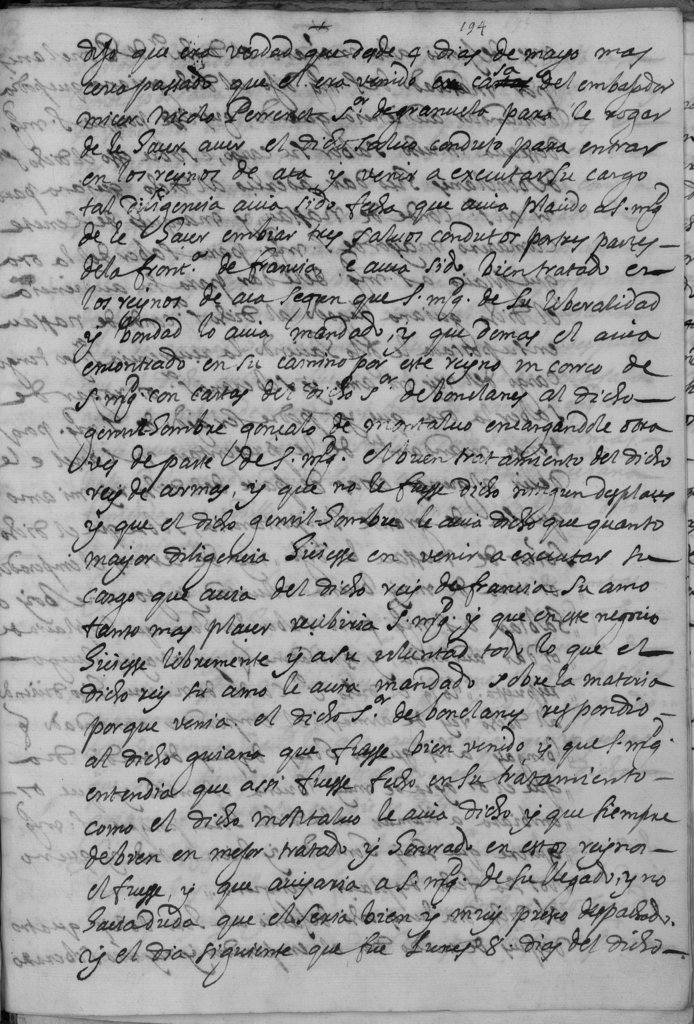 194
dixo que era verdad que desde 4 dias de mayo mas
cerca passado que el era venido en casa del embaxador
micer Nicolo Perrenot s.or de granuela para le rogar
de le hazer aver el dicho saluo conduto para entrar
en los reynos de aca y venir a executar su cargo
tal diligencia auia sido fecha que auia plazido a S. mg.d
de le hazer embiar tres saluos condutos por tres partes
de la front.a de francia, e auia sido bien tratado en
los reynos de aca segun que S. mg.d de su liberalidad
y bondad lo auia mandado, y que demas el auia
encontrado en su camino por este reyno un correo de
S. mg.d con cartas del dicho s.or de bonclans al dicho
gentilhombre gonçalo de montaluo encargandole otra
vez de parte de S. mg.d el buen tratamiento del dicho
rey de armas, y que no le fuesse dicho ningun desplazer
y que el dicho gentilhombre le auia dicho que quanto
mayor diligencia hiziesse en venir a executar su
cargo que auia del dicho rey de francia su amo
tanto mas plazer recibiria S. mg.d y que en este negocio
hiziesse libremente y a su voluntad todo lo que el
dicho rey su amo le auia mandado sobre la materia
porque venia. el dicho s.or de bonclans respondio
al dicho guiana que fuesse bien venido y que S. mg.d
entendia que assi fuesse fecho en su tratamiento
como el dicho montaluo le auia dicho y que siempre
de bien en mejor tratado y honrrado en estos reynos
el fuesse, y que auisaria a S. mg.d de su llegado, y no
hauia duda que el seria bien y muy presto despachado.
y el dia siguiente que fue Lunes 8. dias del dicho